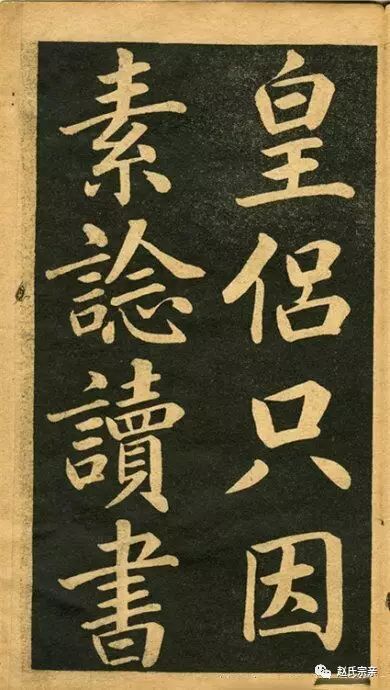 皇侣只因
素諗讀書
赵氏宗亲